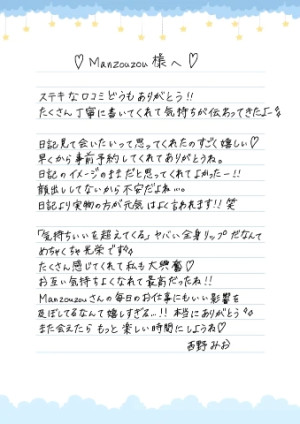 ♡ Manzouzou 様へ ♡
ステキな口コミどうもありがとう!!
たくさん丁寧に書いてくれて気持ちが伝わってきたよー
日記見て会いたいって思ってくれたのすごく嬉しい♡
早くから事前予約してくれてありがとうね。
日記のイメージのままだと思ってくれてよかったー!!
顔出ししてないから不安だよね…。
日記より実物の方が元気はよく言われます!! 笑
「気持ちいいを超えてくる」ヤバい全身リップだなんて
めちゃくちゃ光栄です
たくさん感じてくれて私も大興奮♡
お互い気持ちよくなれて最高だったね!!
Manzouzouさんの毎日のお仕事にもいい影響を
及ぼしてるなんて嬉しすぎる…!! 本当にありがとう
また会えたら もっと楽しい時間にしようね♡
吉野 みお